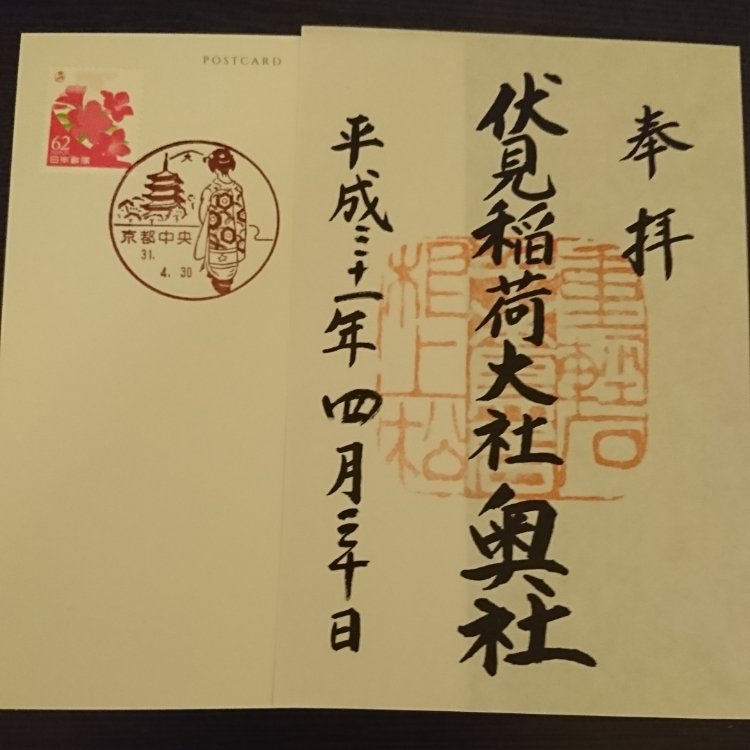 POSTCARD
62
日本郵便
大
京都中央
31.
4. 30
奉拝
伏見稲荷大社奥社
平成三十一年四月三十日
重軽石
根上松